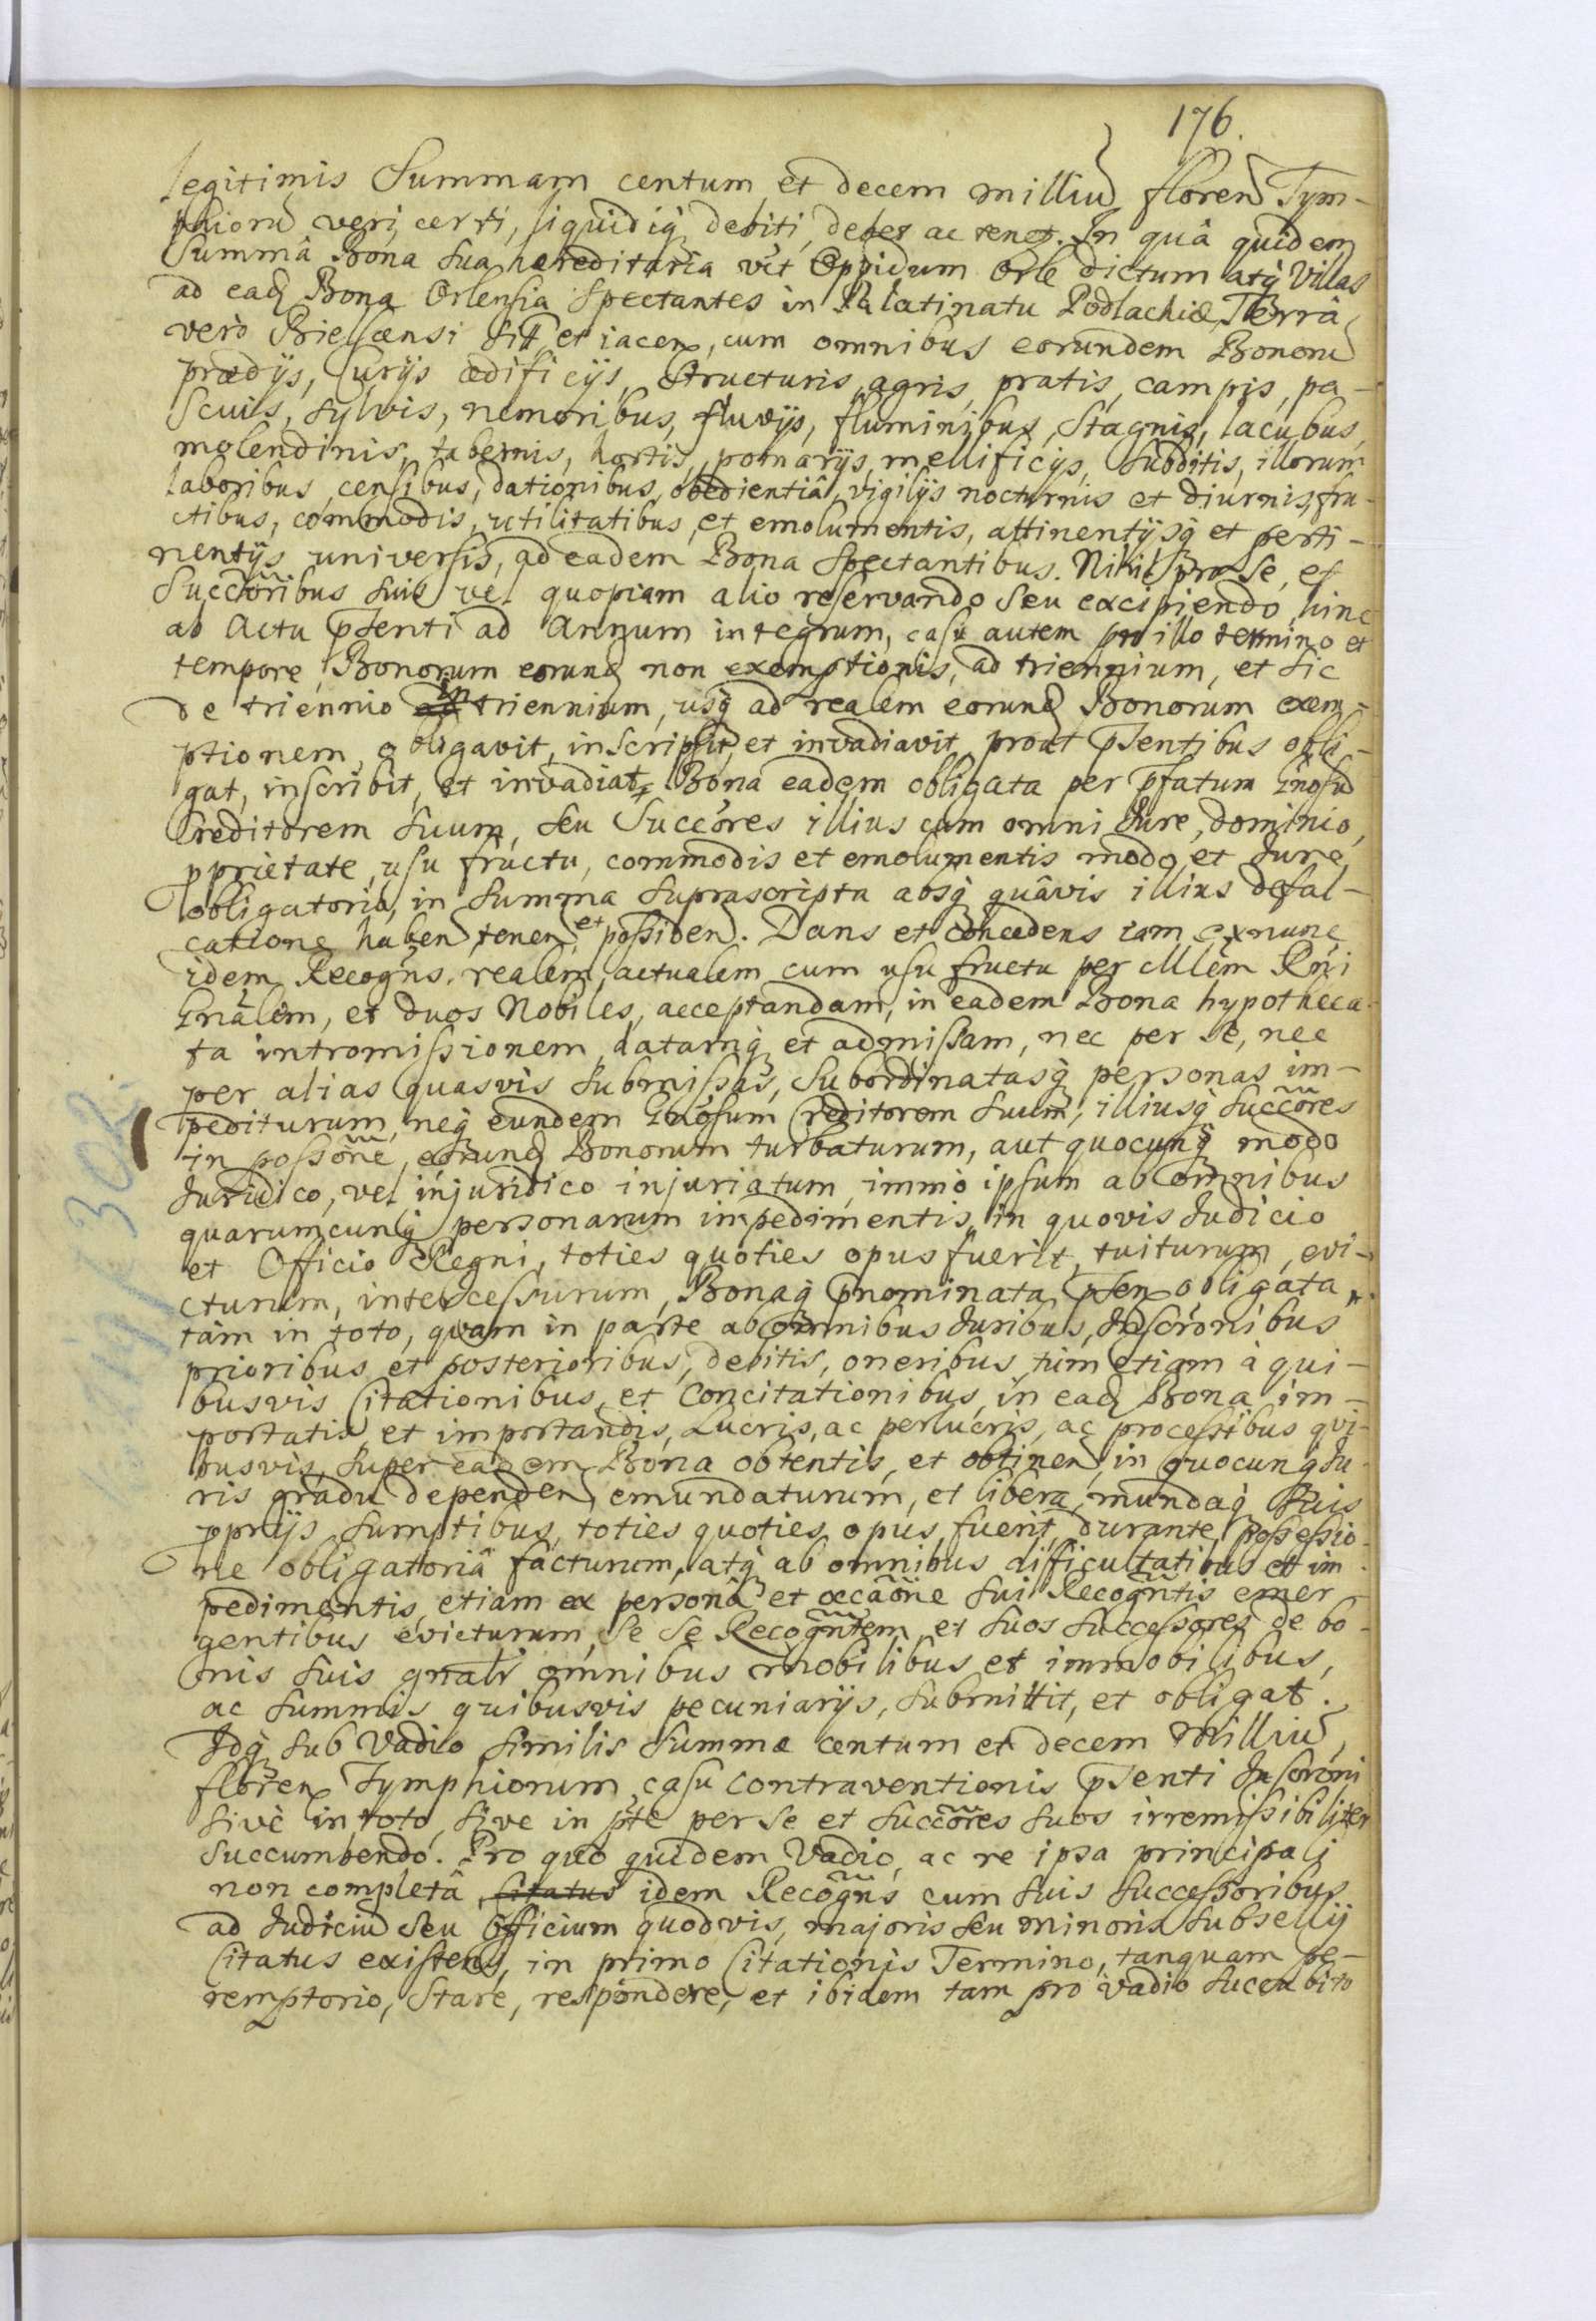 176.
legitimis Summam centum et decem milliu floren Tym-
phioru veri, certi, liquidiq debiti, debet ac tenet. In quâ quidem
Summâ Bona sua hæreditaria vt Oppidum Orle dictum atq Villas
ad eadq Bona Orlensia spectantes in Palatinatu Podlachiæ, Terrâ
verò Bielscensi sitt et iacen, cum omnibus eorundem Bonoru
prædijs, Curijs ædificijs, structuris, agris, pratis, campis, pa-
scuis, sylvis, nemoribus, fluvijs, fluminibus, stagnis, lacubus,
molendinis, tabernis, hortis, pomarijs, mellificijs, subditis, illorum
laboribus, censibus, dationibus, obedientiâ, vigilijs nocturnis et diurnis, fru-
ctibus, commodis, utilitatibus et emolumentis, attinentijsq et perti-
nentijs universis, ad eadem Bona spectantibus. Nihil pro se, et
Succoribus suis vel quopiam alio reservando seu excipiendo, hinc
ab Actu pnsenti ad Annum integrum, casu autem pro illo termino et
tempore Bonorum eorund non exemptionis, ad triennium, et sic
de triennio in triennium, usq ad realem eorund Bonorum exem-
ptionem, obligavit, inscripsit, et invadiavit, prout psentibus obli-
gat, inscribit, et invadiat. Bona eadem obligata per pfatum Gnosu
Creditorem suum, seu Succores illius cum omni Jure, dominio,
pprietate, usu fructu, commodis et emolumentis modo et Jure
obligatorio, in summa suprascripta absq quâvis illius defal-
catione haben, tenen, et possiden. Dans et concedens iam exnunc
idem Recogns. realem, actualem cum usu fructu per Mlem Rni
Gnalem, et duos Nobiles, acceptandam, in eadem Bona hypotheca-
ta intromissionem, datamq et admissam, nec per se, nec
per alias quasvis submissas, subordinatasq personas im-
pediturum, neq eundem Gnosum Creditorem suum, illiusq succores
in possone, eorund Bonorum turbaturum, aut quocunq modo
Juridico, vel injuridico injuriatum, immò ipsum ab omnibus
quarumcunq personarum impedimentis, in quovis Judicio
et Officio Regni, toties quoties opus fuerit, tuiturum, evi-
cturum, intercessurum, Bonaq pnominata psen obligata
tàm in toto, quam in parte ab omnibus Juribus, Inscronibus
prioribus et posterioribus, debitis, oneribus, tùm etiam à qui-
busvis Citationibus, et Concitationibus, in eadq Bona im-
portatis et importandis, Lucris, ac perlucris, ac processibus qui-
busvis, super eadem Bona obtentis, et obtinen, in quocunq Ju-
ris gradu dependen, emundaturum, et libera, mundaq suis
pprijs sumptibus, toties quoties opus fuerit, durante possessio-
ne obligatoriâ facturum, atq ab omnibus difficultatibus et im
pedimentis, etiam ex personâ et occaone sui Recogntis emer
gentibus evicturum, se se Recogntem, et suos successores de bo-
nis suis gnalr omnibus mobilibus et immobilibus,
ac summis quibusvis pecuniarijs, submittit, et obligat.
Idq sub Vadio similis summæ centum et decem Milliu
floren Tymphiorum, casu contraventionis psenti Inscroni
sivè in toto, sive in pte per se et succores suos irremissibiliter
succumbendo. Pro quo quidem Vadio, ac re ipsa principali
non completâ citatus idem Recogns cum suis successoribus
ad Judiciu seu Officium quodvis, majoris seu minoris subsellij
Citatus existens, in primo Citationis Termino, tanquam pe-
remptorio, stare, respondere, et ibidem tam pro vadio succubito